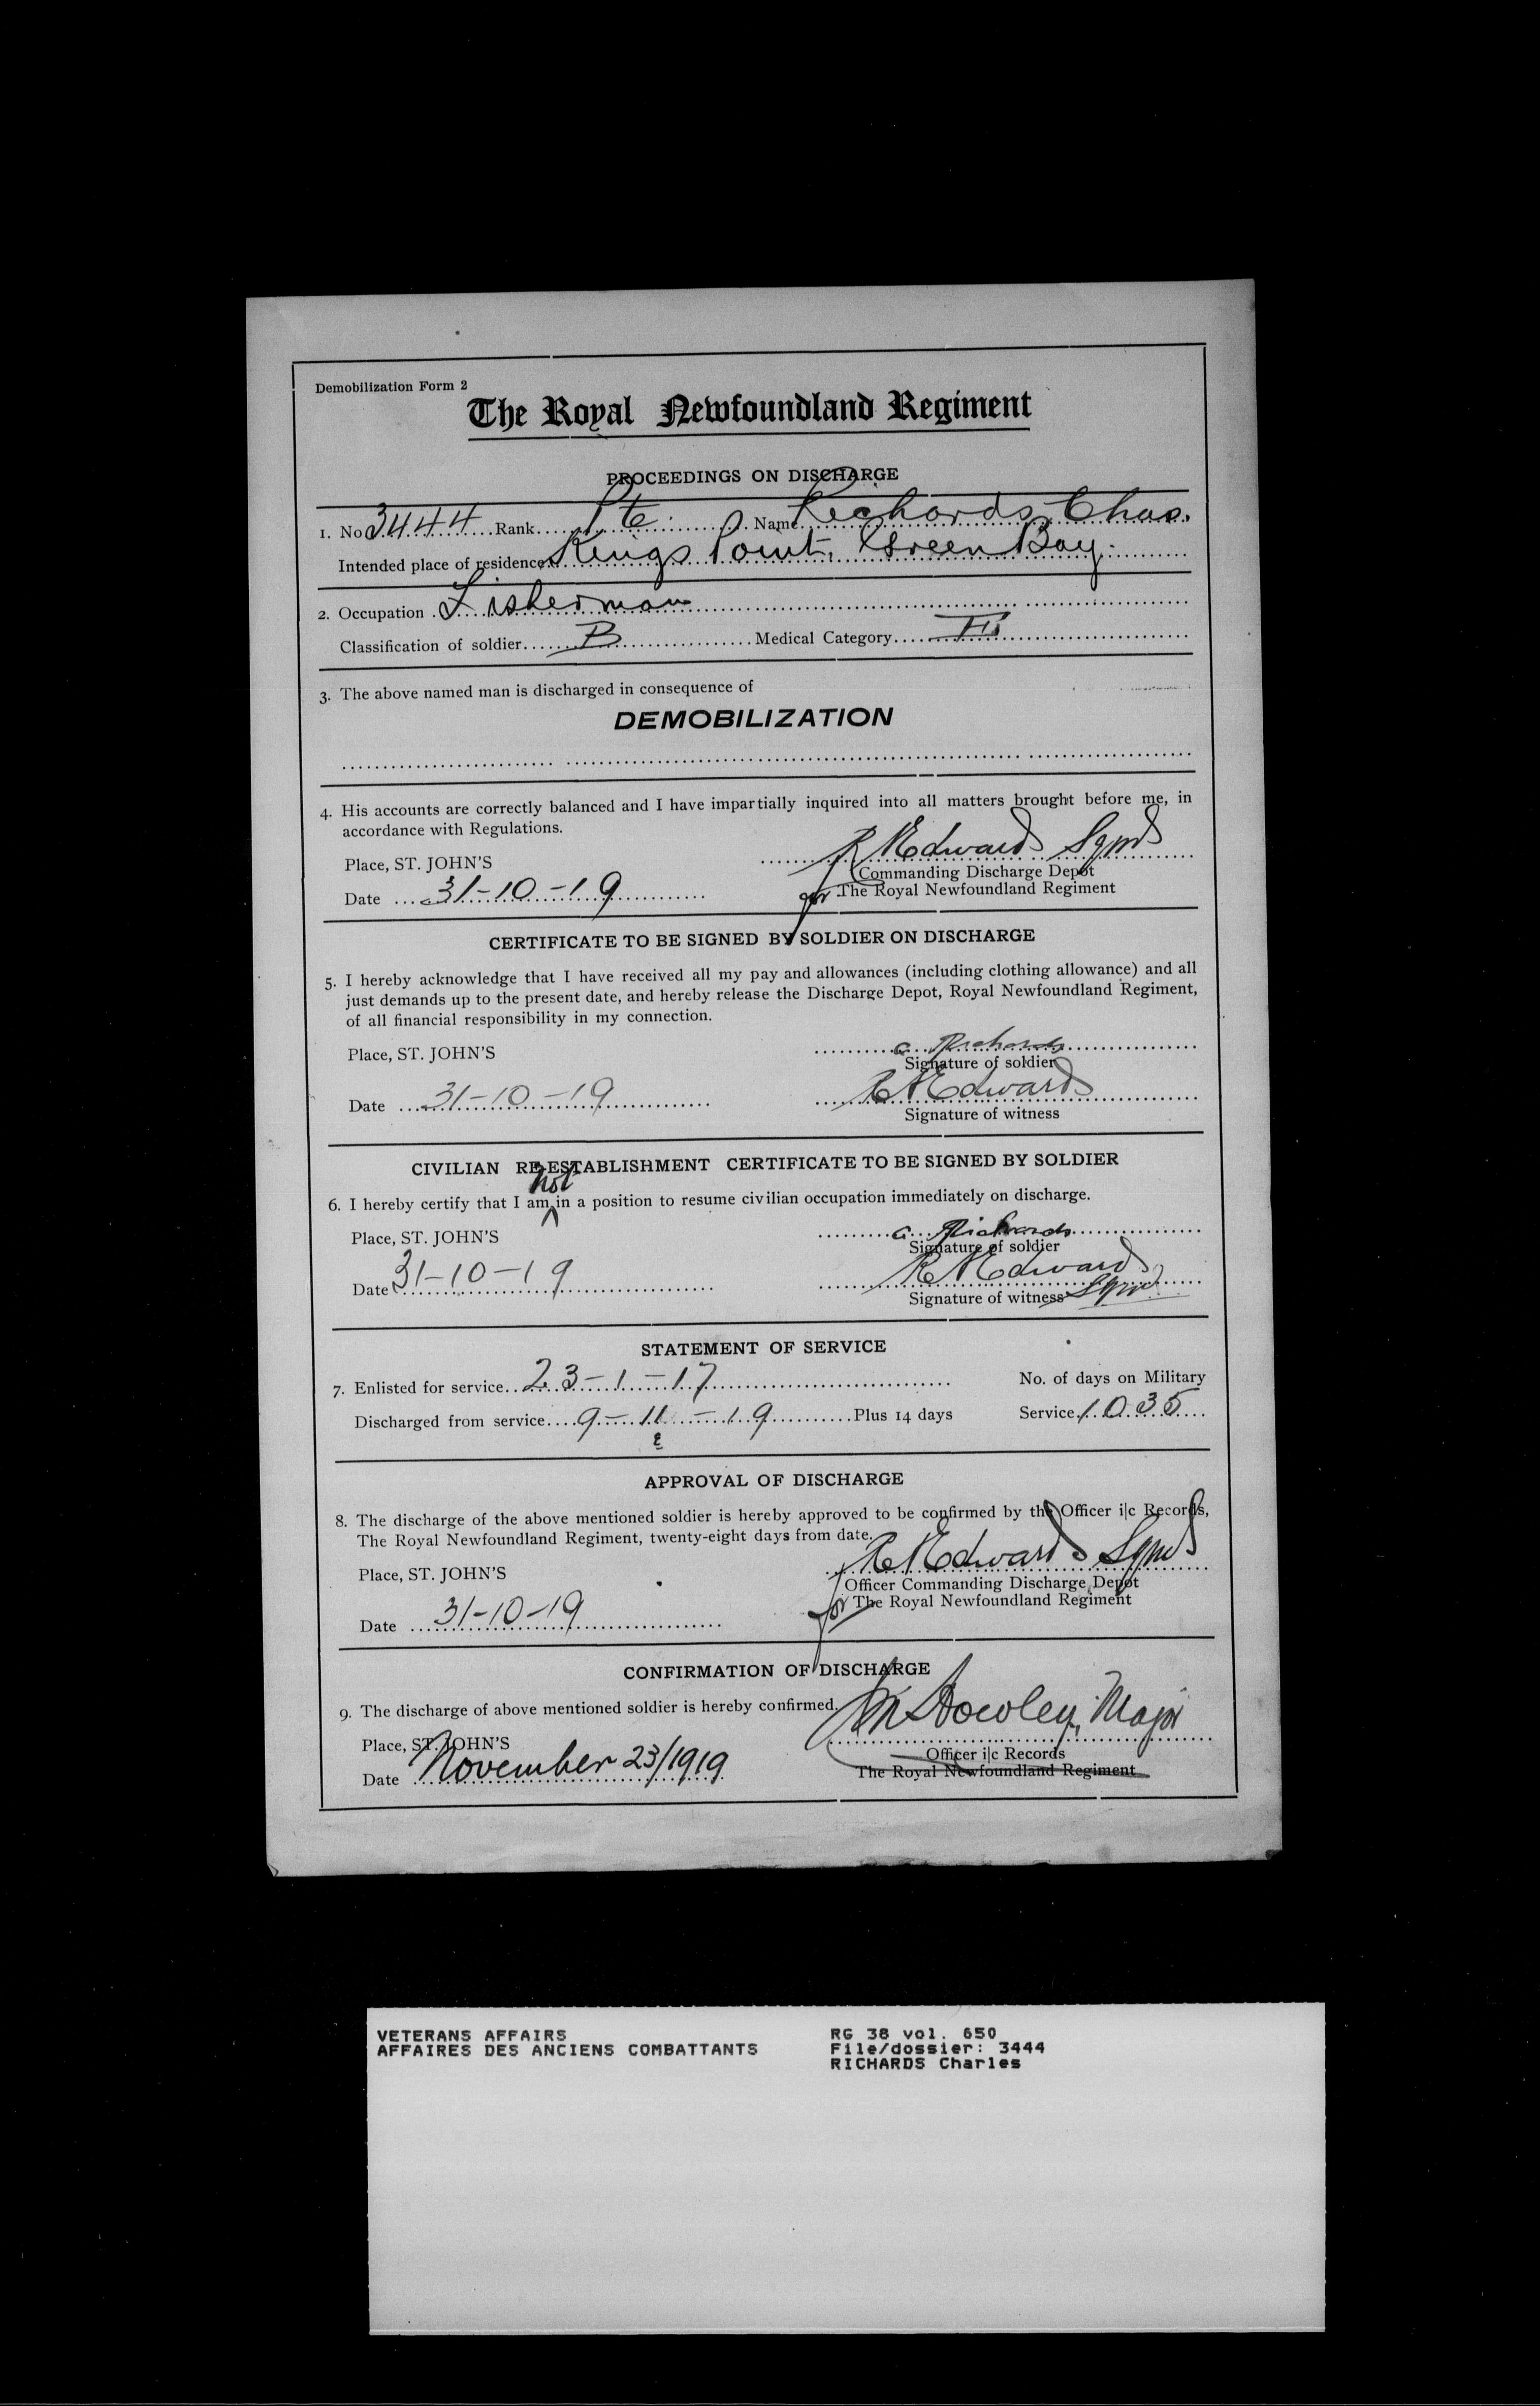 Demobilization Form 2
The Royal Newfoundland Regiment
PROCEEDINGS ON DISCHARGE
1. No 3444 Rank Pte. Name Richards, Chas.
Intended place of residence Kings Point, Green Bay.
2. Occupation Fisherman
Classification of soldier B Medical Category
3. The above named man is discharged in consequence of
DEMOBILIZATION
4. His accounts are correctly balanced and I have impartially inquired into all matters brought before me, in
accordance with Regulations.
Place, ST. JOHN'S
Edwards
Commanding Discharge Depot
Date 31-10-19
for The Royal Newfoundland Regiment
CERTIFICATE TO BE SIGNED BY SOLDIER ON DISCHARGE
5. I hereby acknowledge that I have received all my pay and allowances (including clothing allowance) and all
just demands up to the present date, and hereby release the Discharge Depot, Royal Newfoundland Regiment,
of all financial responsibility in my connection.
Place, ST. JOHN'S
C. Richards
Signature of soldier
Date 31-10-19
Edwards
Signature of witness
CIVILIAN RE-ESTABLISHMENT CERTIFICATE TO BE SIGNED BY SOLDIER
6. I hereby certify that I am not in a position to resume civilian occupation immediately on discharge.
Place, ST. JOHN'S
C. Richards
Signature of soldier
Date 31-10-19
Edwards
Signature of witness
STATEMENT OF SERVICE
7. Enlisted for service 23-1-17 No. of days on Military
Discharged from service 9-11-19 Plus 14 days Service 1035
APPROVAL OF DISCHARGE
8. The discharge of the above mentioned soldier is hereby approved to be confirmed by the Officer i|c Records,
The Royal Newfoundland Regiment, twenty-eight days from date.
Place, ST. JOHN'S
Edwards
Officer Commanding Discharge Depot
for The Royal Newfoundland Regiment
Date 31-10-19
CONFIRMATION OF DISCHARGE
9. The discharge of above mentioned soldier is hereby confirmed.
Major
Place, ST. JOHN'S
Officer i|c Records
Date November 23/1919
The Royal Newfoundland Regiment
VETERANS AFFAIRS
AFFAIRES DES ANCIENS COMBATTANTS
RG 38 vol. 650
File/dossier: 3444
RICHARDS Charles